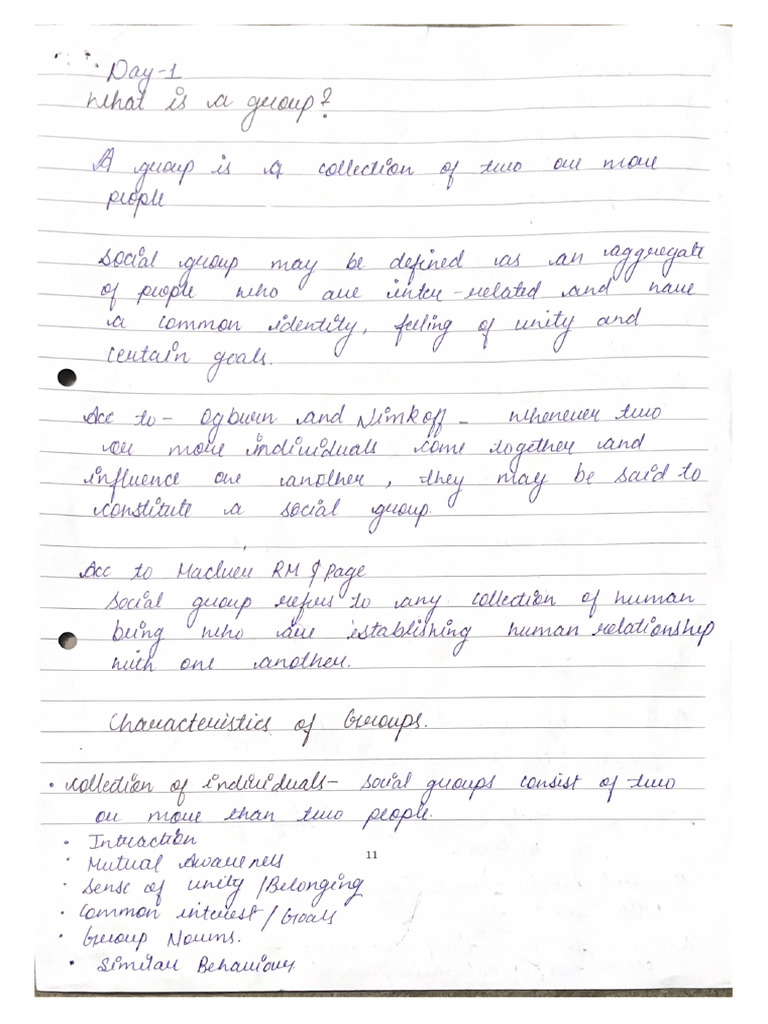 Day-1
What is a group?
A group is a collection of two or more
people
Social group may be defined as an aggregate
of people who are inter-related and have
a common identity, feeling of unity and
certain goals.
Acc to - Ogburn and Nimkoff - whenever two
or more individuals come together and
influence one another, they may be said to
constitute a social group.
Acc to Maciver RM & page
Social group refers to any collection of human
being who are establishing human relationship
with one another.
Characteristics of Groups.
• Collection of individuals- Social groups consist of two
or more than two people.
• Intraction
11
• Mutual Awareness
• Sense of unity /Belonging
• Common interest / Goals
• Group Norms.
• Similar Behaviour